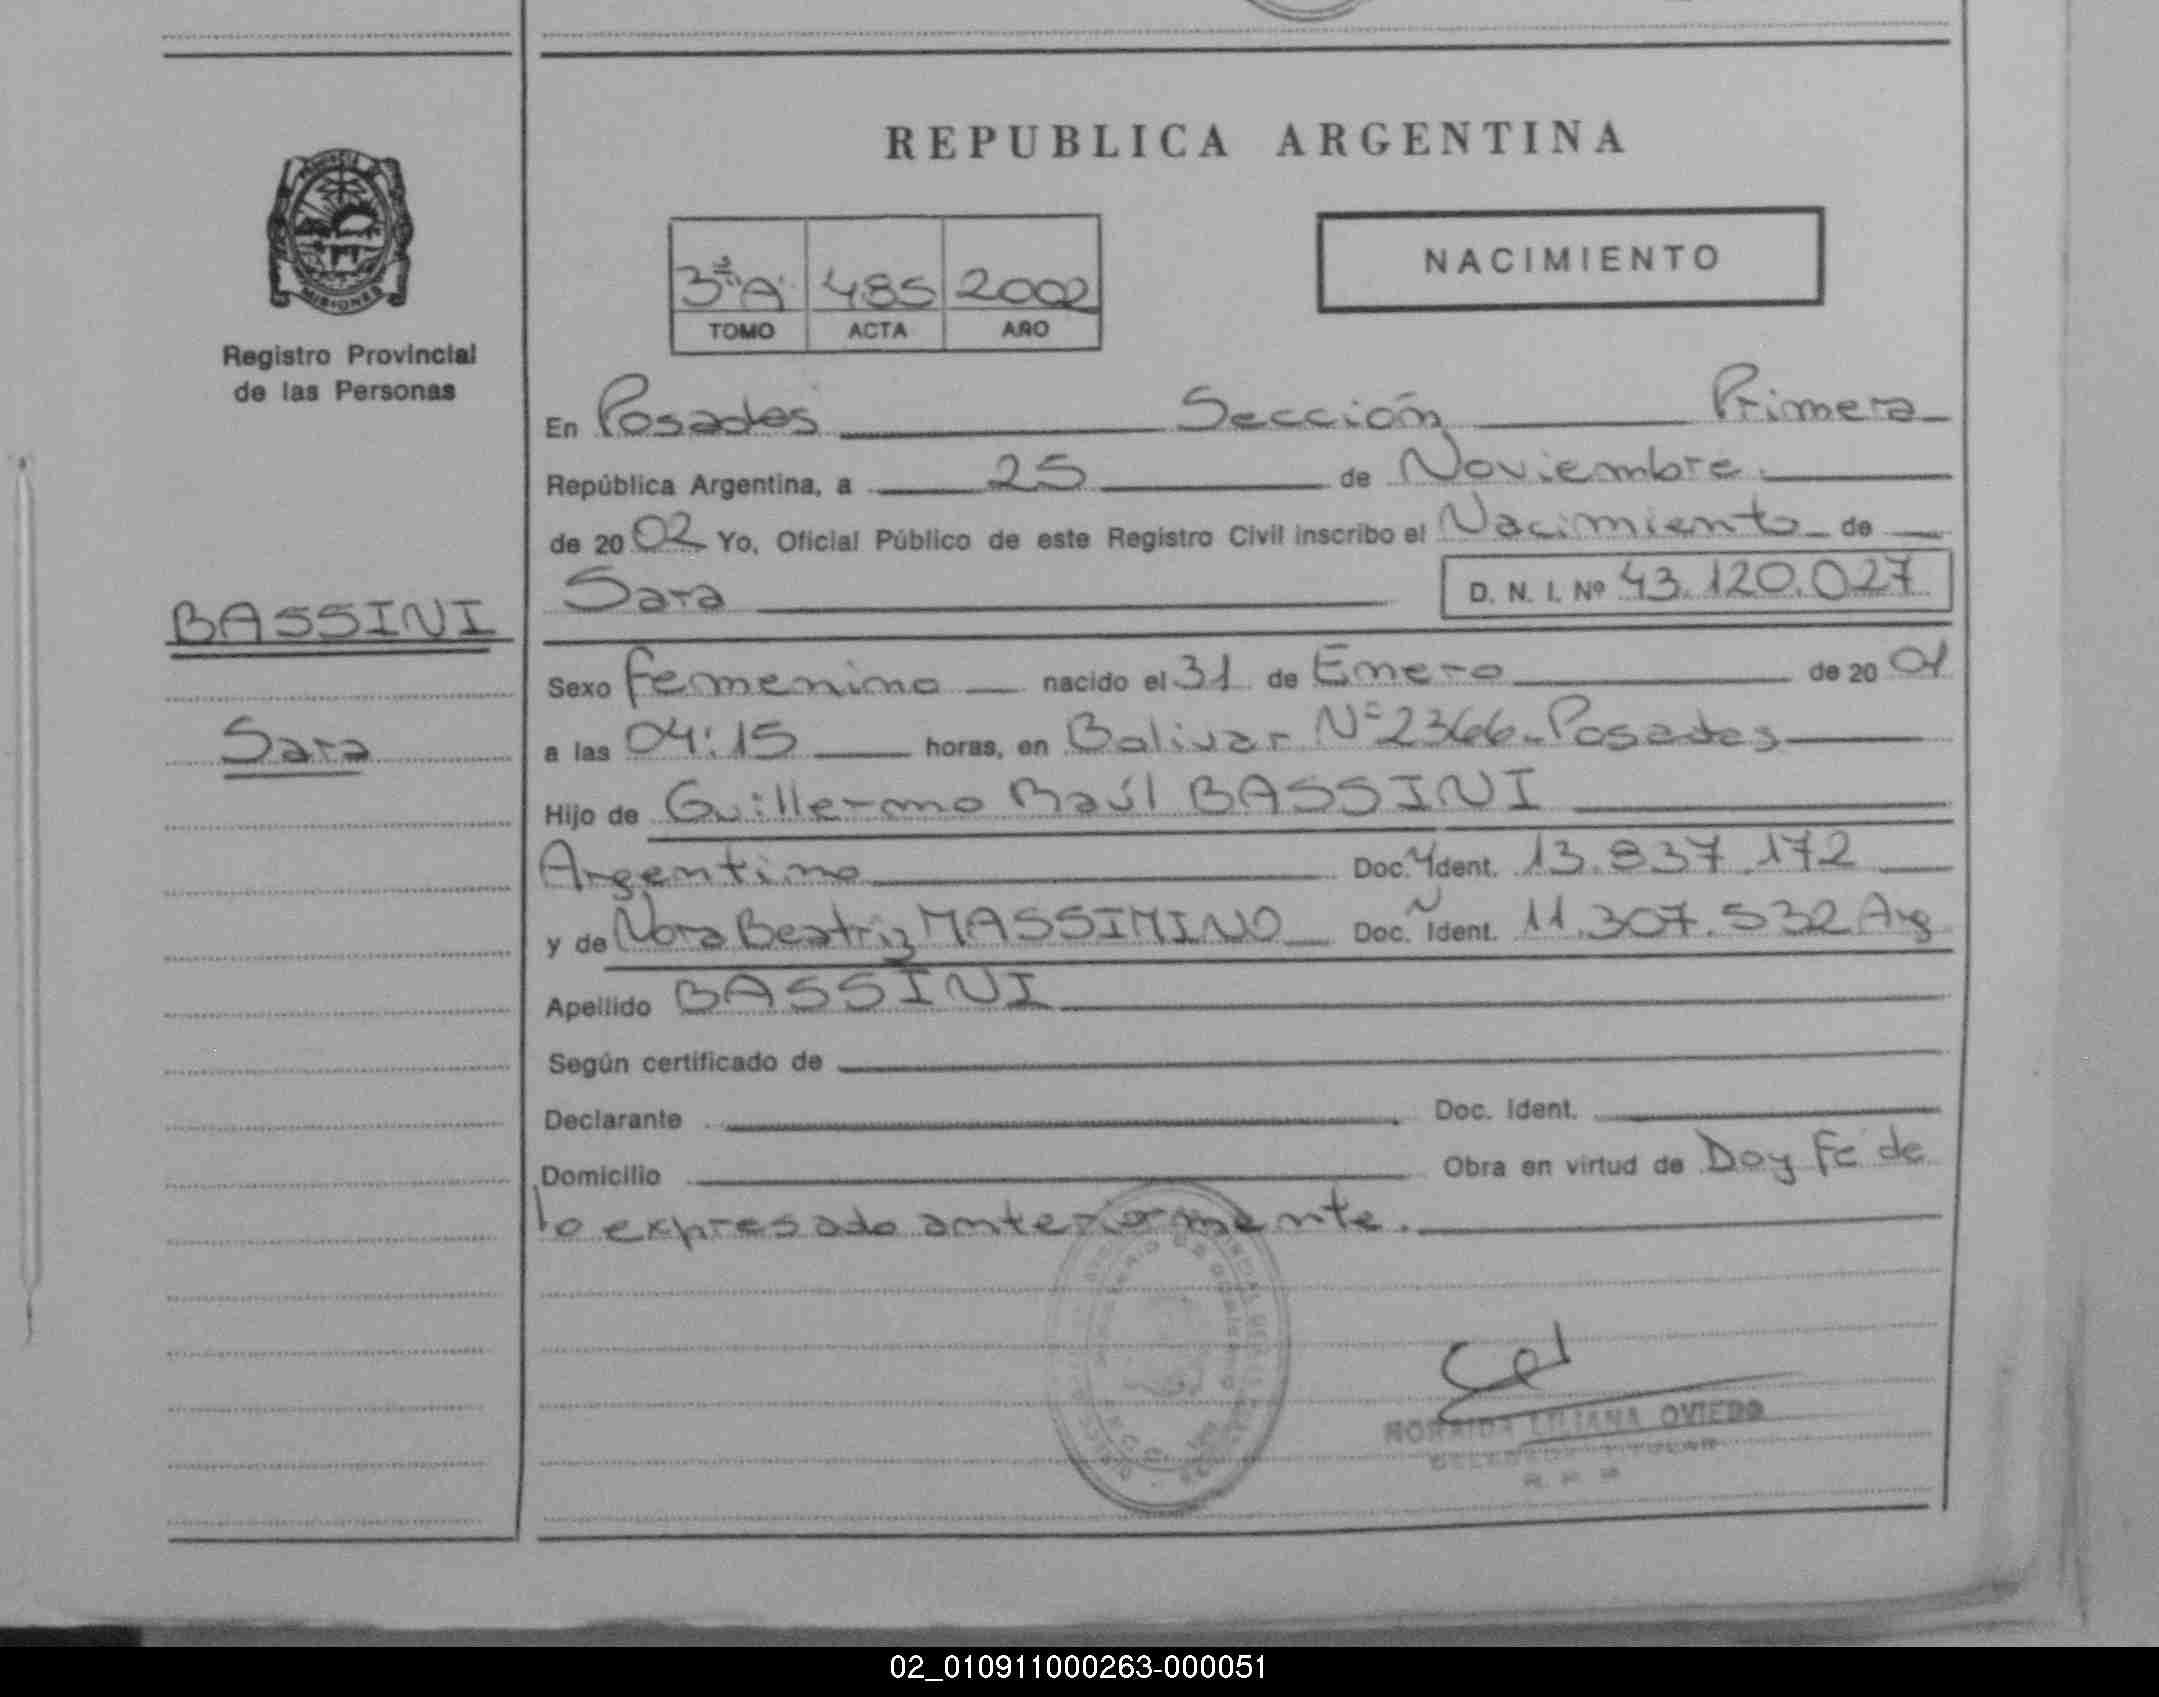 REPUBLICA ARGENTINA
NACIMIENTO
3ºA 485 2002
TOMO ACTA AÑO
MISIONES
Registro Provincial
de las Personas
En Posadas Sección Primera
República Argentina, a 25 de Noviembre
de 2002 Yo, Oficial Público de este Registro Civil inscribo el Nacimiento de
Sara D. N. I. Nº 43.120.027
BASSINI
Sexo femenino nacido el 31 de Enero de 20 01
Sara
a las 04:15 horas, en Bolivar Nº 2366 - Posadas
Hijo de Guillermo Raúl BASSINI
Argentino Doc. Ident. 13.837.172
y de Nora Beatriz MASSIMINO Doc. Ident. 11.307.532 Arg
Apellido BASSINI
Según certificado de
Declarante Doc. Ident.
Domicilio Obra en virtud de Doy Fé de
lo expresado anteriormente.
LILIANA OVIEDO
TITULAR
02_010911000263-000051